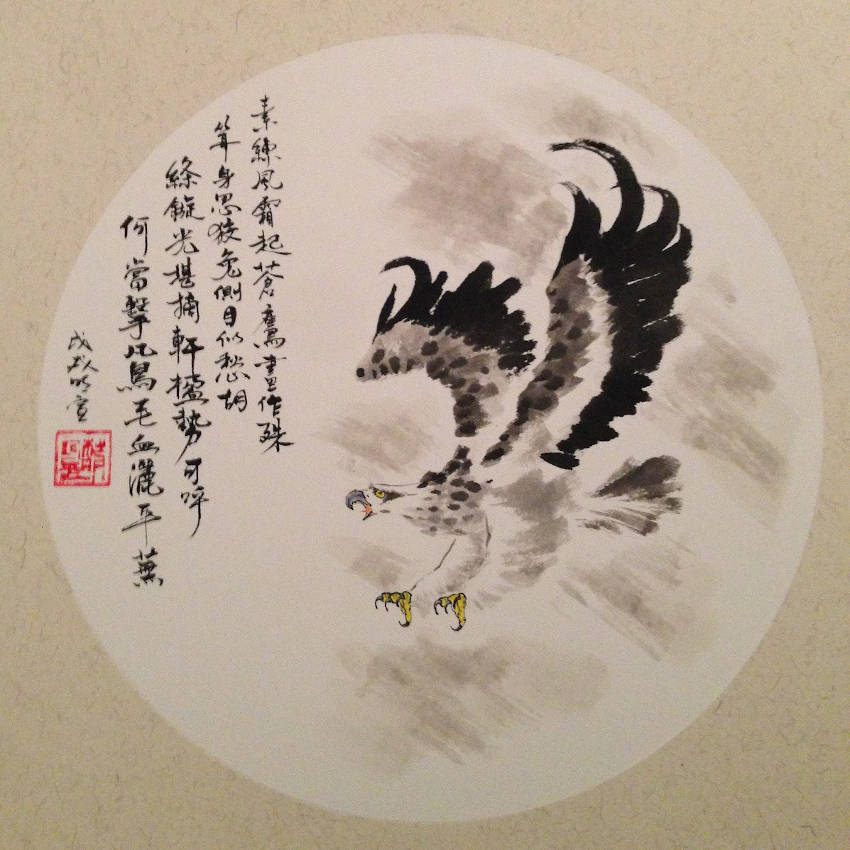 素練風霜起蒼鷹畫作殊
身思狡兔側目似愁胡
絛鏇光堪摘軒楹勢可呼
何當擊凡鳥毛血灑平蕪
戊戌明宣